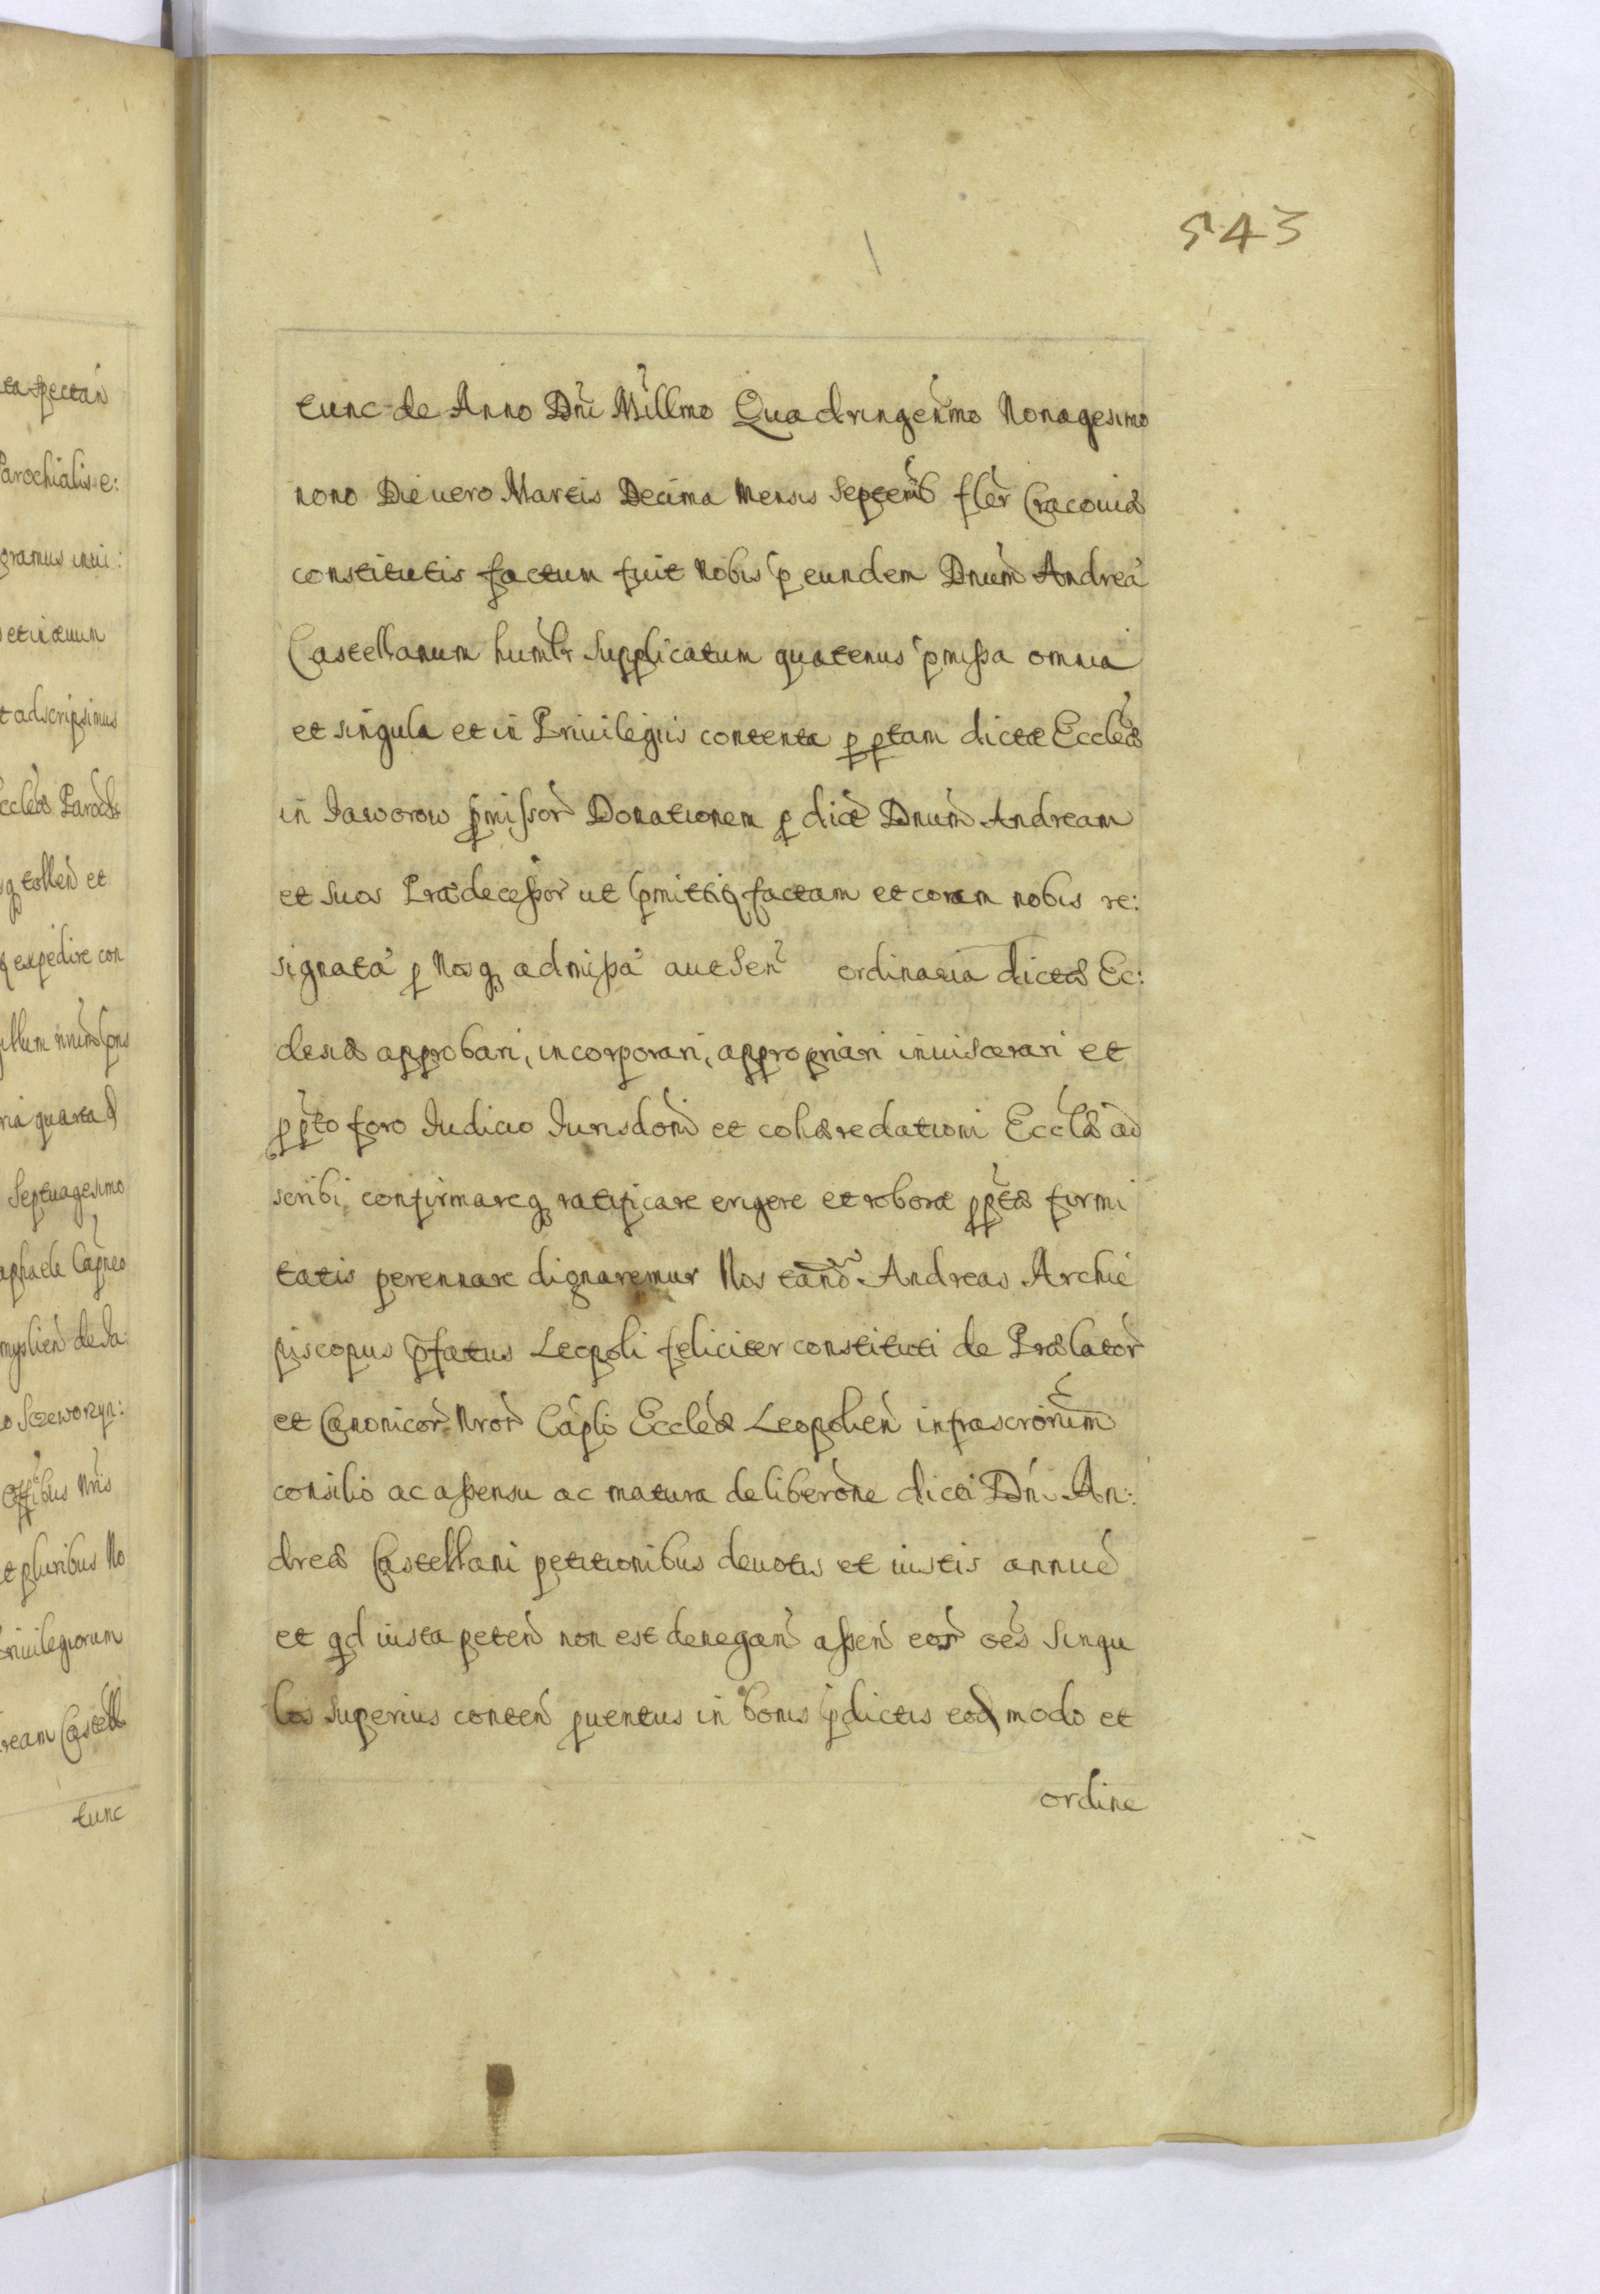 543
ta spectan̄
Parochialis e:
gramus invi:
s et in ævum
t adscripsimus
cclēæ Parōch
q tollen̄ et
q expedire con
ria quarta
Septuagesimo
aphaele Cap̄neo
myslien̄ de Ja
o Sczeworzyn:
Off̄ibus Nr̄is
et pluribus No
Privilegiorum
ream Castell
tunc
tunc de Anno Dn̄i Mīllmo Quadringen̄mo Nonagesimo
nono Die uero Martis Decima Mensis Septem̄b flēr Cracouiæ
constitutis factum fuit Nobis p̱ eundem Dnūm Andreā
Castellanum humlr̄ Supplicatum quatenus p̄missa omnia
et singula et in Priuilegiis contenta p̱ pp̱tam dictæ Ecclēæ
in Jaworow p̄missor̄ Donationem p̱ dict̄ Dnūm Andream
et suos Prædecessor̄ ut p̄mittit̄ factam et coram nobis re:
signatā p̱ Nosq̨ admissā aut Sen̄ ordinaria dictæ Ec:
clesiæ approbari, incorporari, appropriari inuiscerari et
pp̱t̄o foro Iudicio Iurisdon̄i et cohæredationi Ecclǣ ad
scribi, confirmareq̨ ratificare erigere et roboræ pp̱t̄æ firmi
tatis perennare dignaremur Nos tand̄ Andreas Archie
piscopus p̄fatus Leopoli feliciter constituti de Prælator̄
et Canonicor̄ Nror̄ Cāpli Ecclēæ Leopolien̄ infrascrōrum̄
consilio ac assensu ac matura deliberōne dicti Dn̄i An:
dreæ Castellani petitionibus deuotis et iustis annuen̄
et qd̄ iusta peten̄ non est denegan̄ assen̄ eor̄ oēs singu
los superius conten̄ p̱uentus in bonis p̄dictis eod̄ modo et
ordine